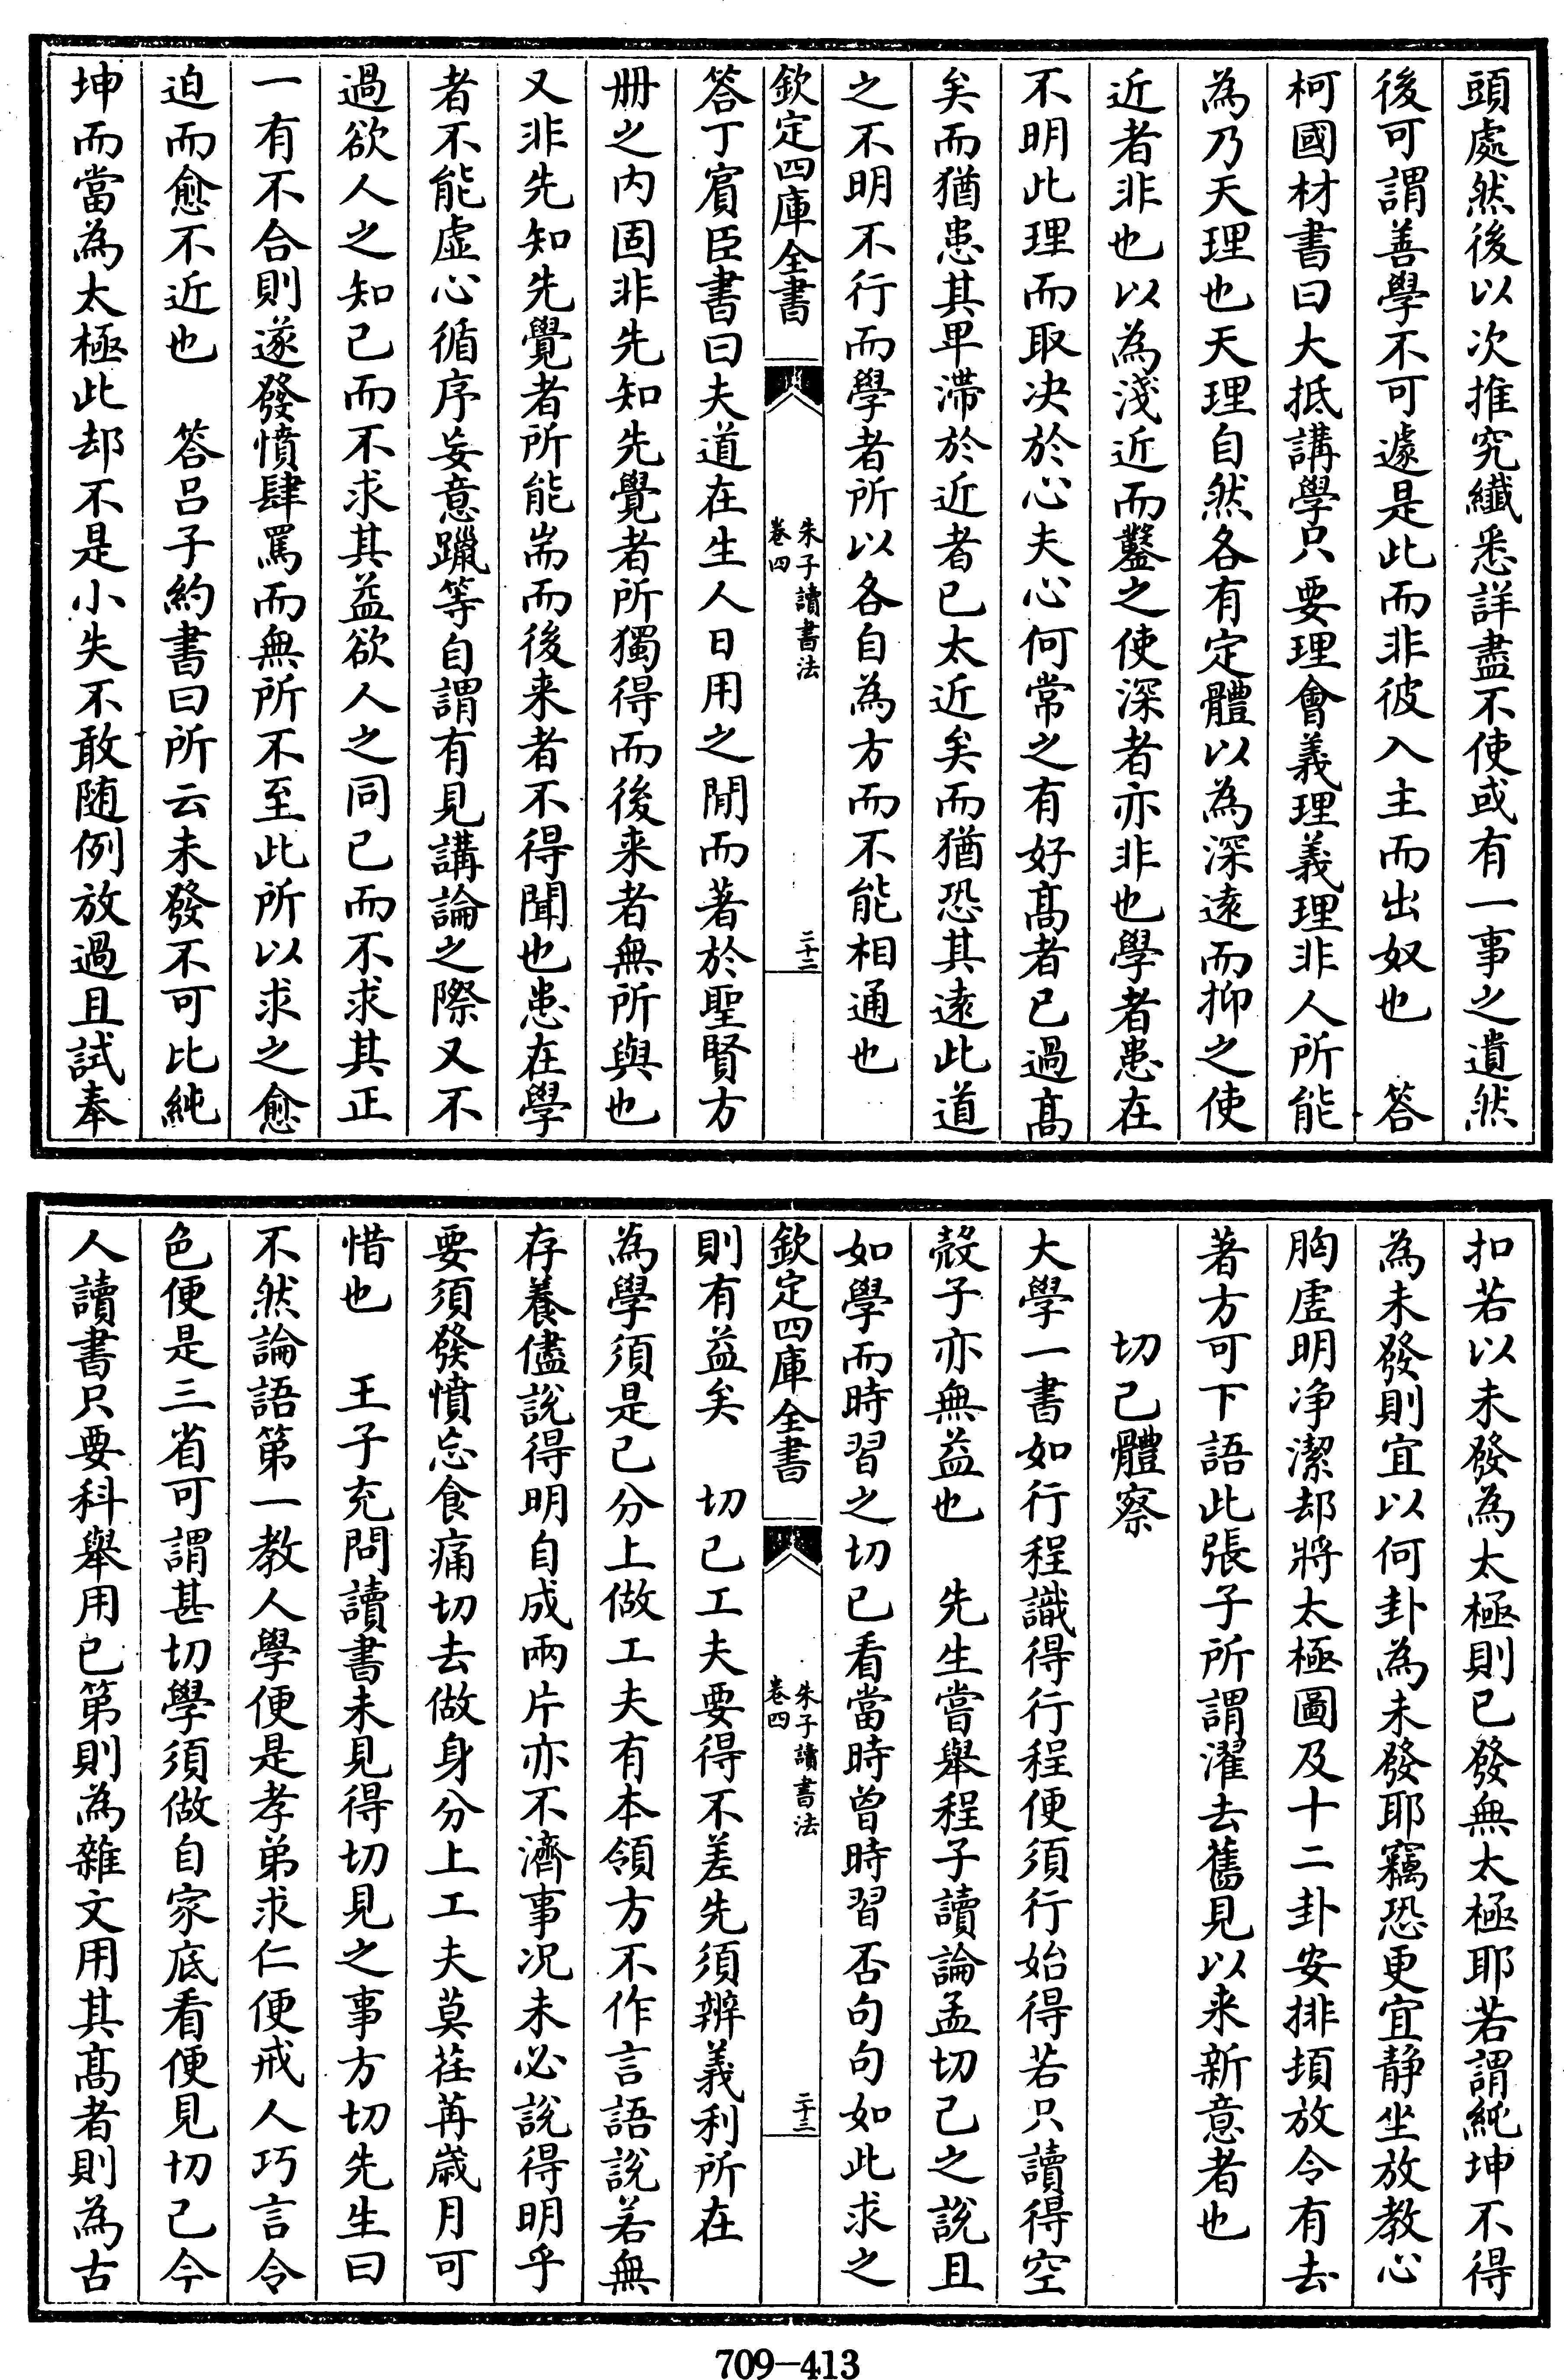 頭處然後以次推究纎悉詳盡不使或有一事之遺然
後可謂善學不可遽是此而非彼入主而出奴也　答
柯國材書曰大抵講學只要理會義理義理非人所能
為乃天理也天理自然各有定體以為深遠而抑之使
近者非也以為淺近而鑿之使深者亦非也學者患在
不明此理而取决於心夫心何常之有好髙者已過髙
矣而猶患其卑滯於近者已太近矣而猶恐其遠此道
之不明不行而學者所以各自為方而不能相通也
欽定四庫全書
朱子讀書法
卷四
二十二
答丁賓臣書曰夫道在生人日用之間而著於聖賢方
册之内固非先知先覺者所獨得而後来者無所與也
又非先知先覺者所能耑而後来者不得聞也患在學
者不能虚心循序妄意躐等自謂有見講論之際又不
過欲人之知己而不求其益欲人之同己而不求其正
一有不合則遂發憤肆罵而無所不至此所以求之愈
迫而愈不近也　答吕子約書曰所云未發不可比純
坤而當為太極此却不是小失不敢随例放過且試奉
扣若以未發為太極則已發無太極耶若謂純坤不得
為未發則宜以何卦為未發耶竊恐更宜静坐放教心
胸虚明净潔却將太極圖及十二卦安排頓放令有去
著方可下語此張子所謂濯去舊見以来新意者也
切己體察
大學一書如行程識得行程便須行始得若只讀得空
殻子亦無益也　先生嘗舉程子讀論孟切己之說且
如學而時習之切己看當時曾時習否句句如此求之
欽定四庫全書
朱子讀書法
卷四
二十三
則有益矣　切己工夫要得不差先須辨義利所在
為學須是己分上做工夫有本領方不作言語說若無
存養儘說得明自成兩片亦不濟事况未必說得明乎
要須發憤忘食痛切去做身分上工夫莫荏苒歲月可
惜也　王子充問讀書未見得切見之事方切先生曰
不然論語第一教人學便是孝弟求仁便戒人巧言令
色便是三省可謂甚切學須做自家底看便見切己今
人讀書只要科舉用已第則為雜文用其髙者則為古
709-413